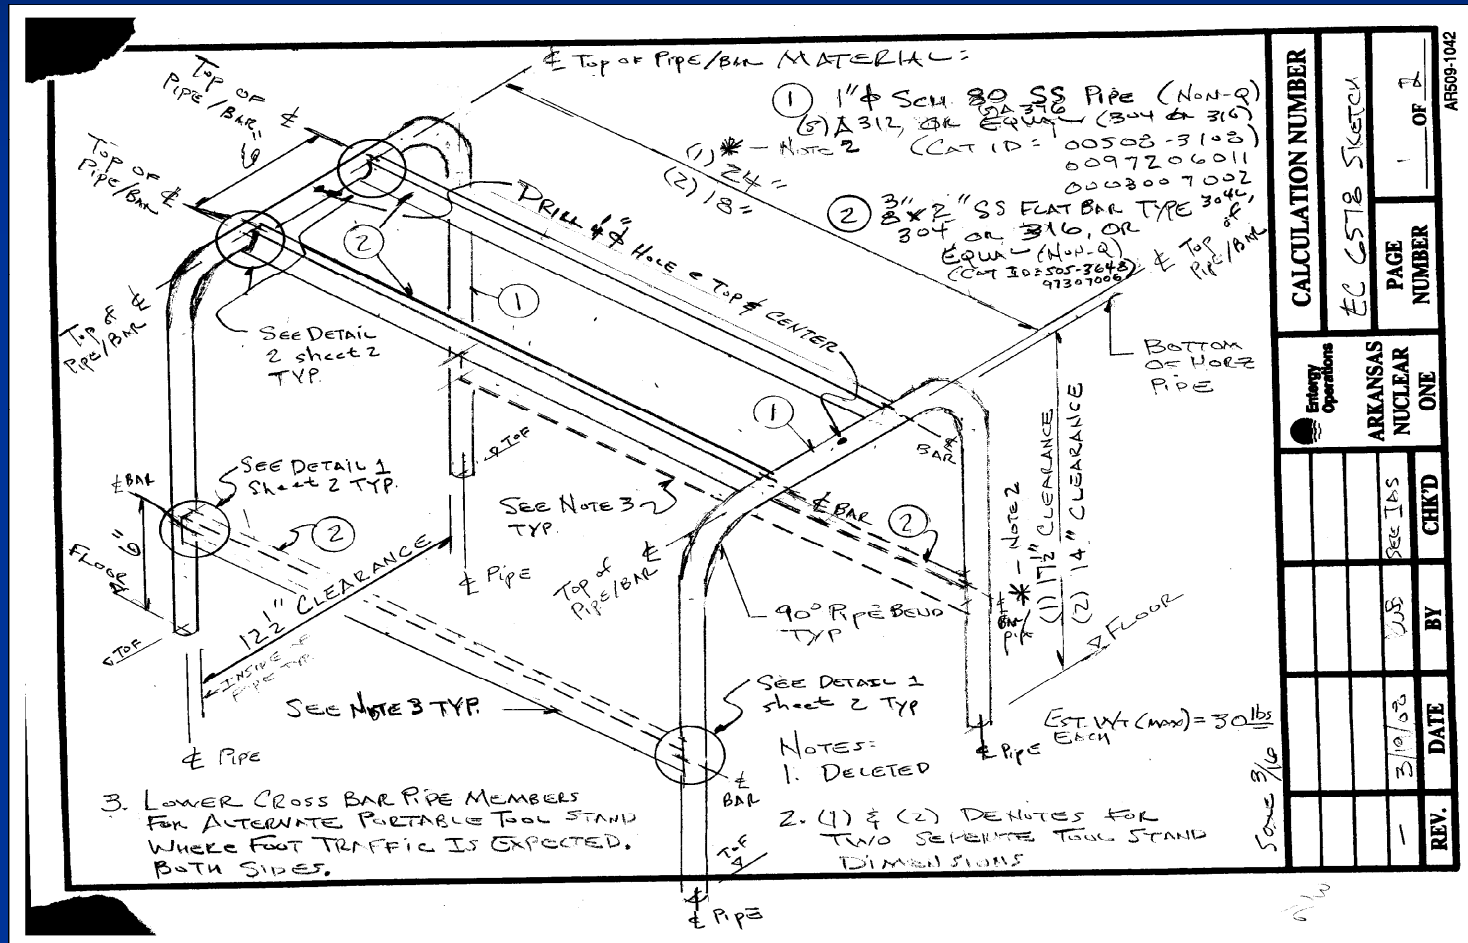 ℄ Top of Pipe/Bar MATERIAL:
① 1"φ SCH 80 SS PIPE (NON-Q)
(S) A312, OR EQUAL (304 OR 316)
(CAT ID = 00508-3108)
0097206011
0003007002
② 3/8" x 2" SS FLAT BAR TYPE 304L,
304 OR 316, OR
EQUAL (NON-Q)
(CAT ID=505-3648)
97307006
Top of ℄
Pipe/Bar
6"
Top of ℄
Pipe/Bar
Top of ℄
Pipe/Bar
(1) * - NOTE 2
24"
(2) 18"
DRILL ¼"φ HOLE @ TOP ℄ CENTER
②
①
℄ Top of
Pipe/Bar
BOTTOM
OF HORZ
PIPE
SEE DETAIL
2 sheet 2
TYP.
①
BAR ℄
TOF
SEE DETAIL 1
Sheet 2 TYP.
℄ BAR
②
6"
FLOOR
TOF
12½" CLEARANCE
INSIDE OF
PIPE TYP.
SEE NOTE 3
TYP.
℄ BAR
②
℄ PIPE
Top of ℄
Pipe/BAR
90° PIPE BEND
TYP
℄
BAR/
pipe
* - NOTE 2
(1) 17½" CLEARANCE
(2) 14" CLEARANCE
FLOOR
SEE NOTE 3 TYP.
SEE DETAIL 1
sheet 2 TYP
℄ PIPE
℄
BAR
TOF
℄ PIPE
℄ PIPE
EST. WT (MAX) = 30 lbs
EACH
NOTES:
1. DELETED
2. (1) & (2) DENOTES FOR
TWO SEPERATE TOOL STAND
DIMENSIONS
3. LOWER CROSS BAR PIPE MEMBERS
FOR ALTERNATE PORTABLE TOOL STAND
WHERE FOOT TRAFFIC IS EXPECTED.
BOTH SIDES.
CALCULATION NUMBER
EC 6578 SKETCH
PAGE
NUMBER
1 OF 2
AR509-1042
Entergy
Operations
ARKANSAS
NUCLEAR
ONE
CHK'D
SEE IAS
BY
DATE
REV.
—